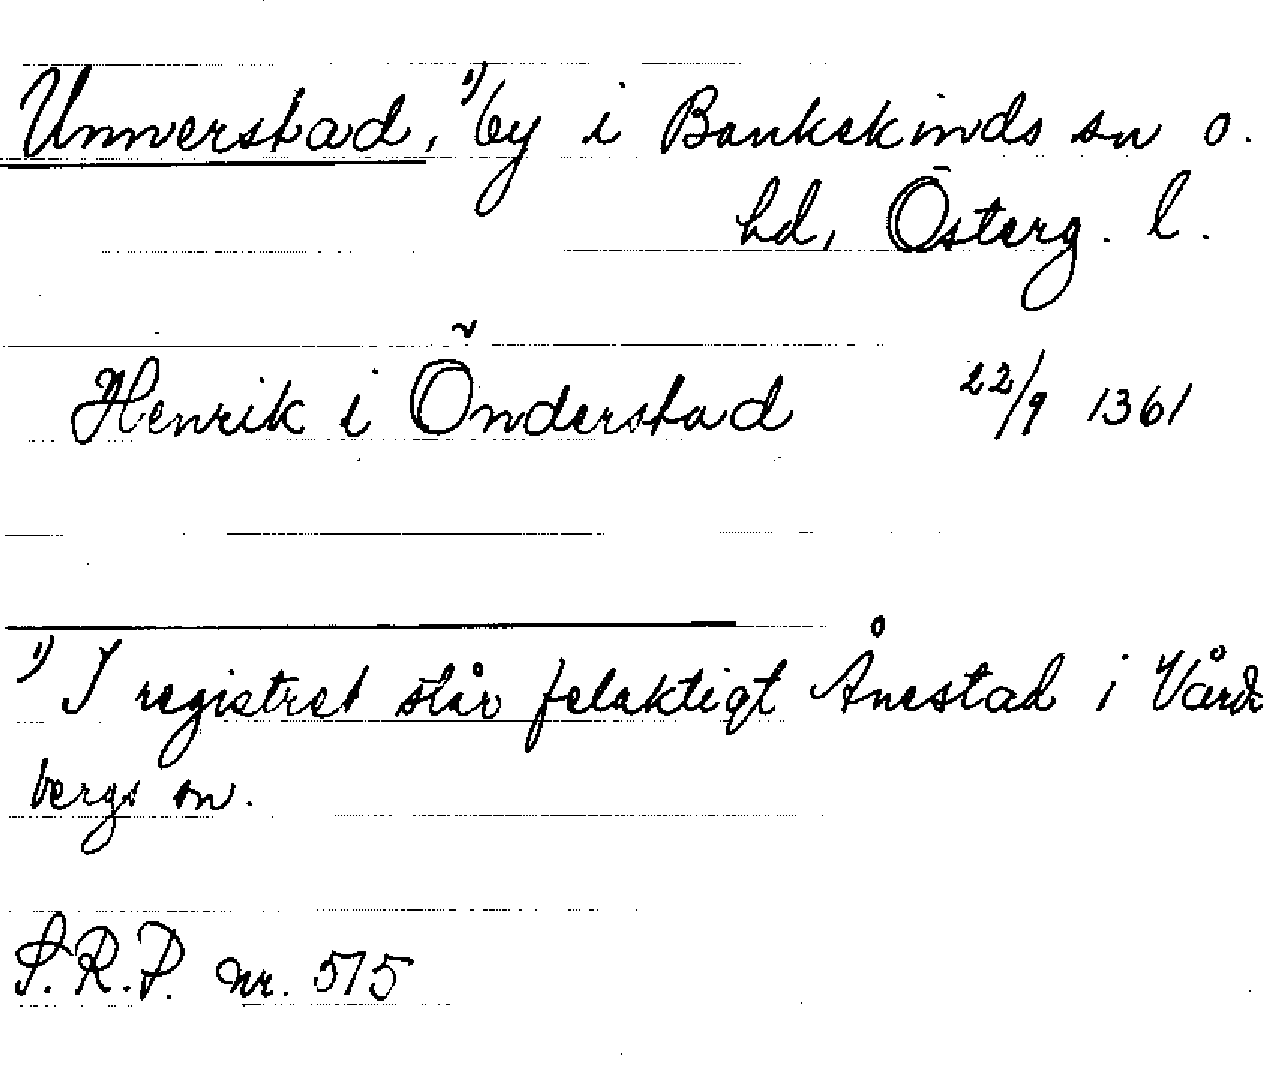 Unnverstad, ¹⁾ by i Bankekinds sn o.
hd, Österg. l.
Henrik i Önderstad 22/9 1361
¹⁾ I registret står felaktigt Ånestad i Vårds
bergs sn.
S.R.P. nr. 515